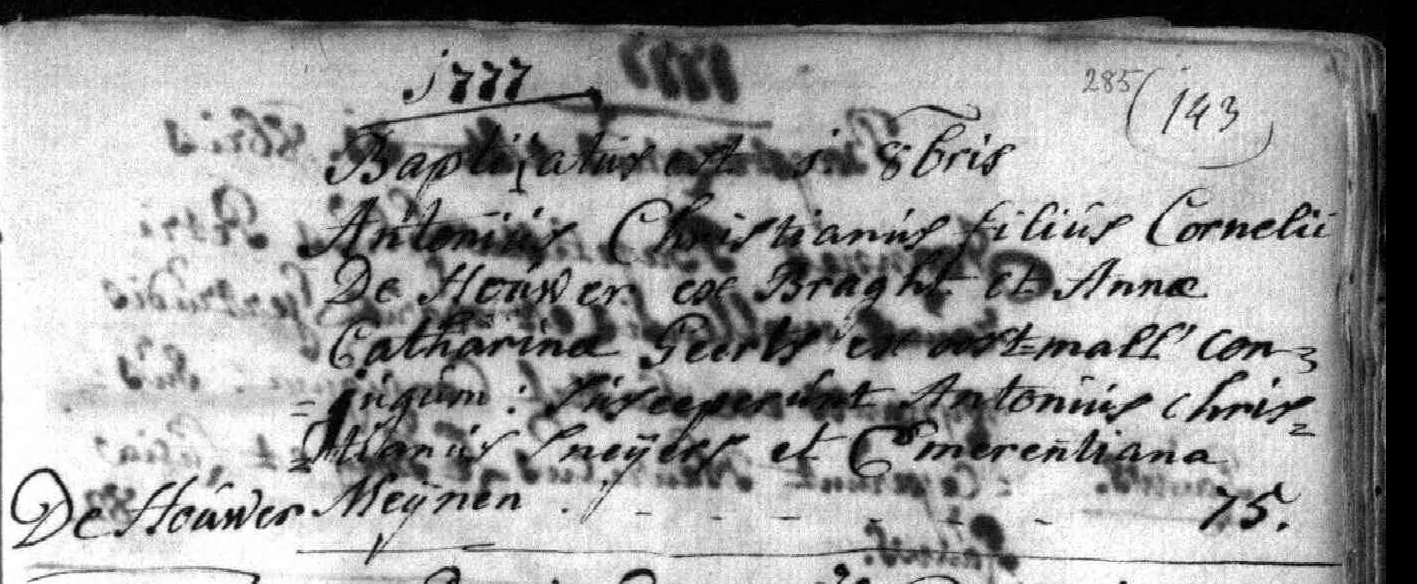 1777
285 (143)
Baptizatus est 5. 8bris
Antonius Christianus filius Cornelii
De Houwer ex Braght et Annæ
Catharinæ Geerts ex oostmall con=
=jugum: susceperunt Antonius Chris=
=tianus Sneÿers et Emerentiana
De Houwer Meÿnen . - - - - - 75.